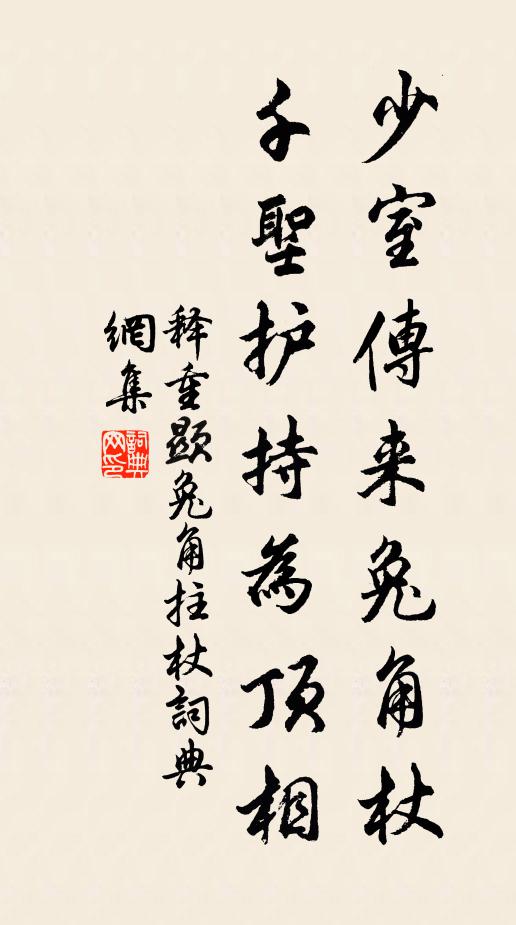 少室傳来兔角杖
千聖护持為頂相
释重顯兔角拄杖詞典
網集
詞典网印